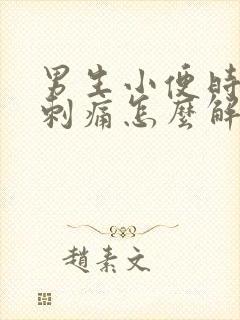 男生小便時
刺痛怎麼解
趙素文